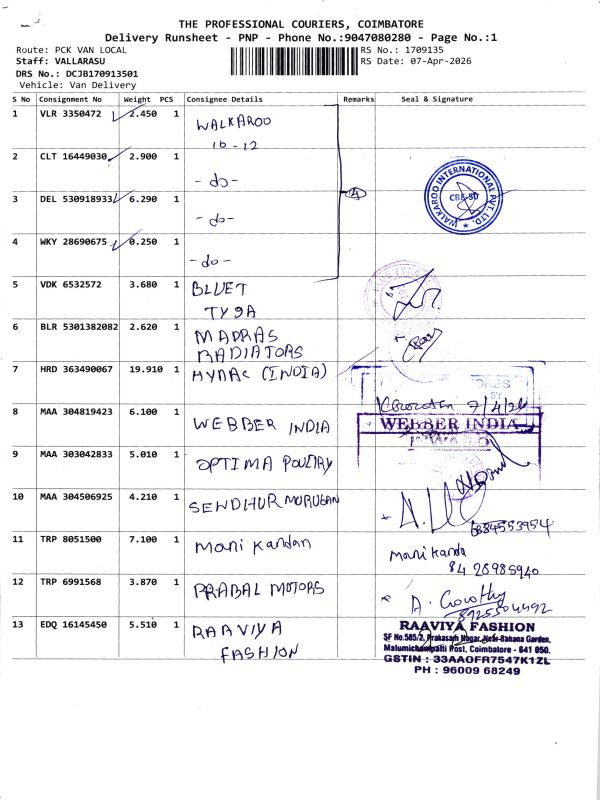 THE PROFESSIONAL COURIERS, COIMBATORE
Delivery Runsheet - PNP - Phone No.:9047080280 - Page No.:1
Route: PCK VAN LOCAL
RS No.: 1709135
Staff: VALLARASU
RS Date: 07-Apr-2026
DRS No.: DCJB170913501
Vehicle: Van Delivery
S No Consignment No Weight PCS Consignee Details Remarks Seal & Signature
1 VLR 3350472 2.450 1 WALKAROO
10-12
2 CLT 16449030 2.900 1 -do-
3 DEL 530918933 6.290 1 -do- 4
WALKAROO INTERNATIONAL PVT. LTD.
CBE-50
4 WKY 28690675 0.250 1 -do-
5 VDK 6532572 3.680 1 BLUET
TYGA
6 BLR 5301382082 2.620 1 MADRAS
RADIATORS
7 HRD 363490067 19.910 1 HYNAC (INDIA)
7/4/26
8 MAA 304819423 6.100 1 WEBBER INDIA
WEBBER INDIA
9 MAA 303042833 5.010 1 OPTIMA POULTRY
10 MAA 304506925 4.210 1 SENDHUR MURUGAN
6384553954
11 TRP 8051500 7.100 1 Mani Kandan
Manikanda
84 28985940
12 TRP 6991568 3.870 1 PRABAL MOTORS
8925504492
13 EDQ 16145450 5.510 1 RAAVIYA
FASHION
RAAVIYA FASHION
SF No.585/2, Prakasam Nagar, Near-Sahana Garden,
Malumichampatti Post, Coimbatore - 641 050.
GSTIN : 33AAOFR7547K1ZL
PH : 96009 68249